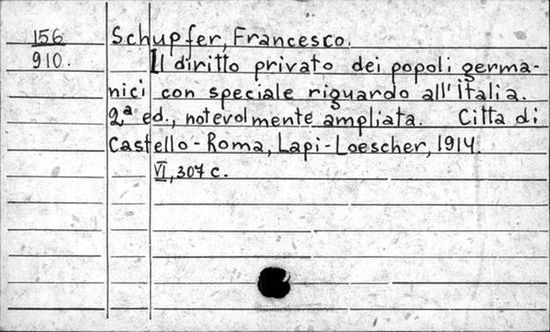 156 Schupfer, Francesco.
910. Il diritto privato dei popoli germa-
nici con speciale riguardo all'Italia.
2ª ed., notevolmente ampliata. Citta di
Castello-Roma, Lapi-Loescher, 1914.
VI, 307 c.